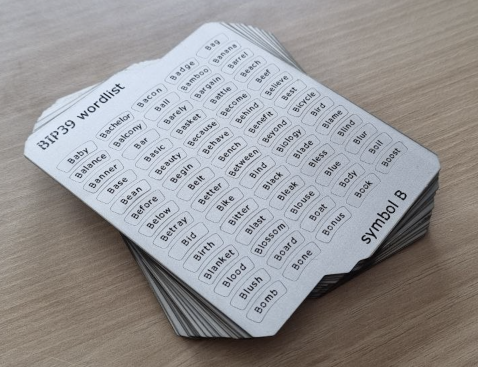 BIP39 wordlist
Baby Bachelor Bacon Badge Bag
Balance Balcony Ball Bamboo Banana
Banner Bar Barely Bargain Barrel
Base Basic Basket Battle Beach
Bean Beauty Because Become Beef
Before Begin Behave Behind Believe
Below Belt Bench Benefit Best
Betray Better Between Beyond Bicycle
Bid Bike Bind Biology Bird
Birth Bitter Black Blade Blame
Blanket Blast Bleak Bless Blind
Blood Blossom Blouse Blue Blur
Blush Board Boat Body Boil
Bomb Bone Bonus Book Boost
symbol B